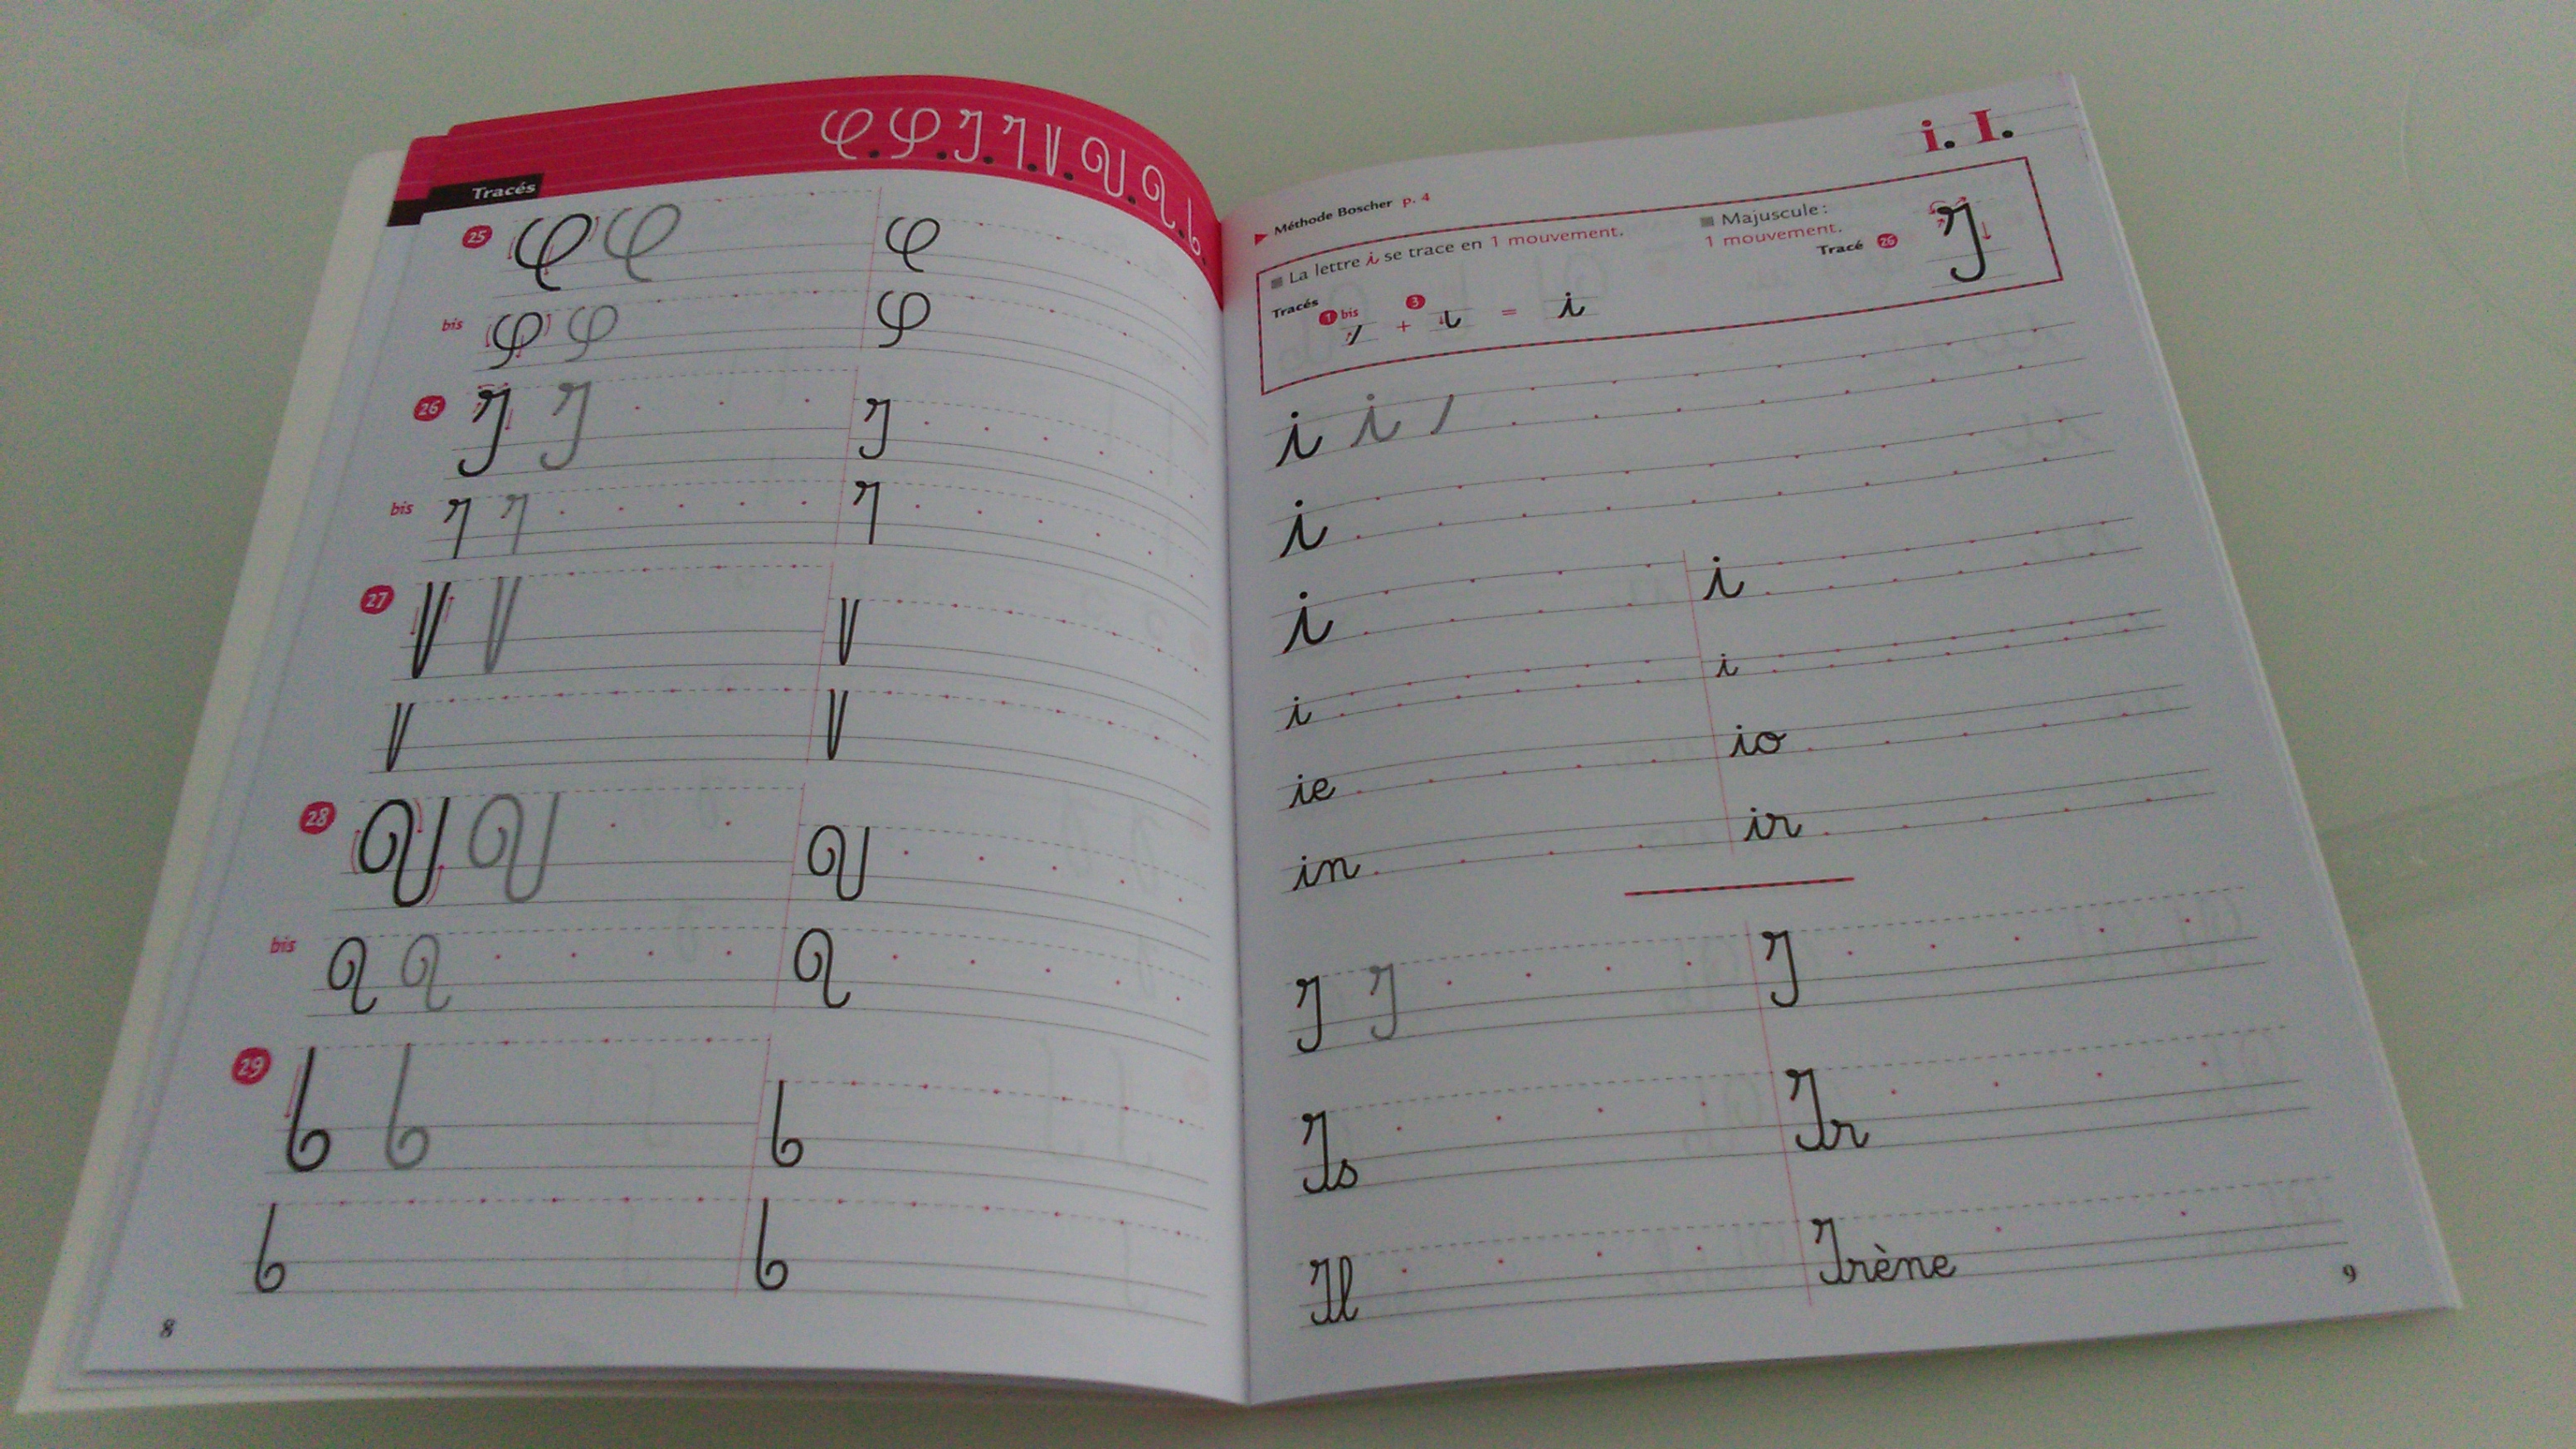 Tracés
25
bis
26
bis
27
28
bis
29
8
i. I.
Méthode Boscher p. 4
La lettre i se trace en 1 mouvement.
Majuscule :
1 mouvement.
Tracé 26 I
Tracés 1 bis + 3 = i
i i
i
i i
i i
ie io
in ir
I I I
Is Ir
Il Irène
9